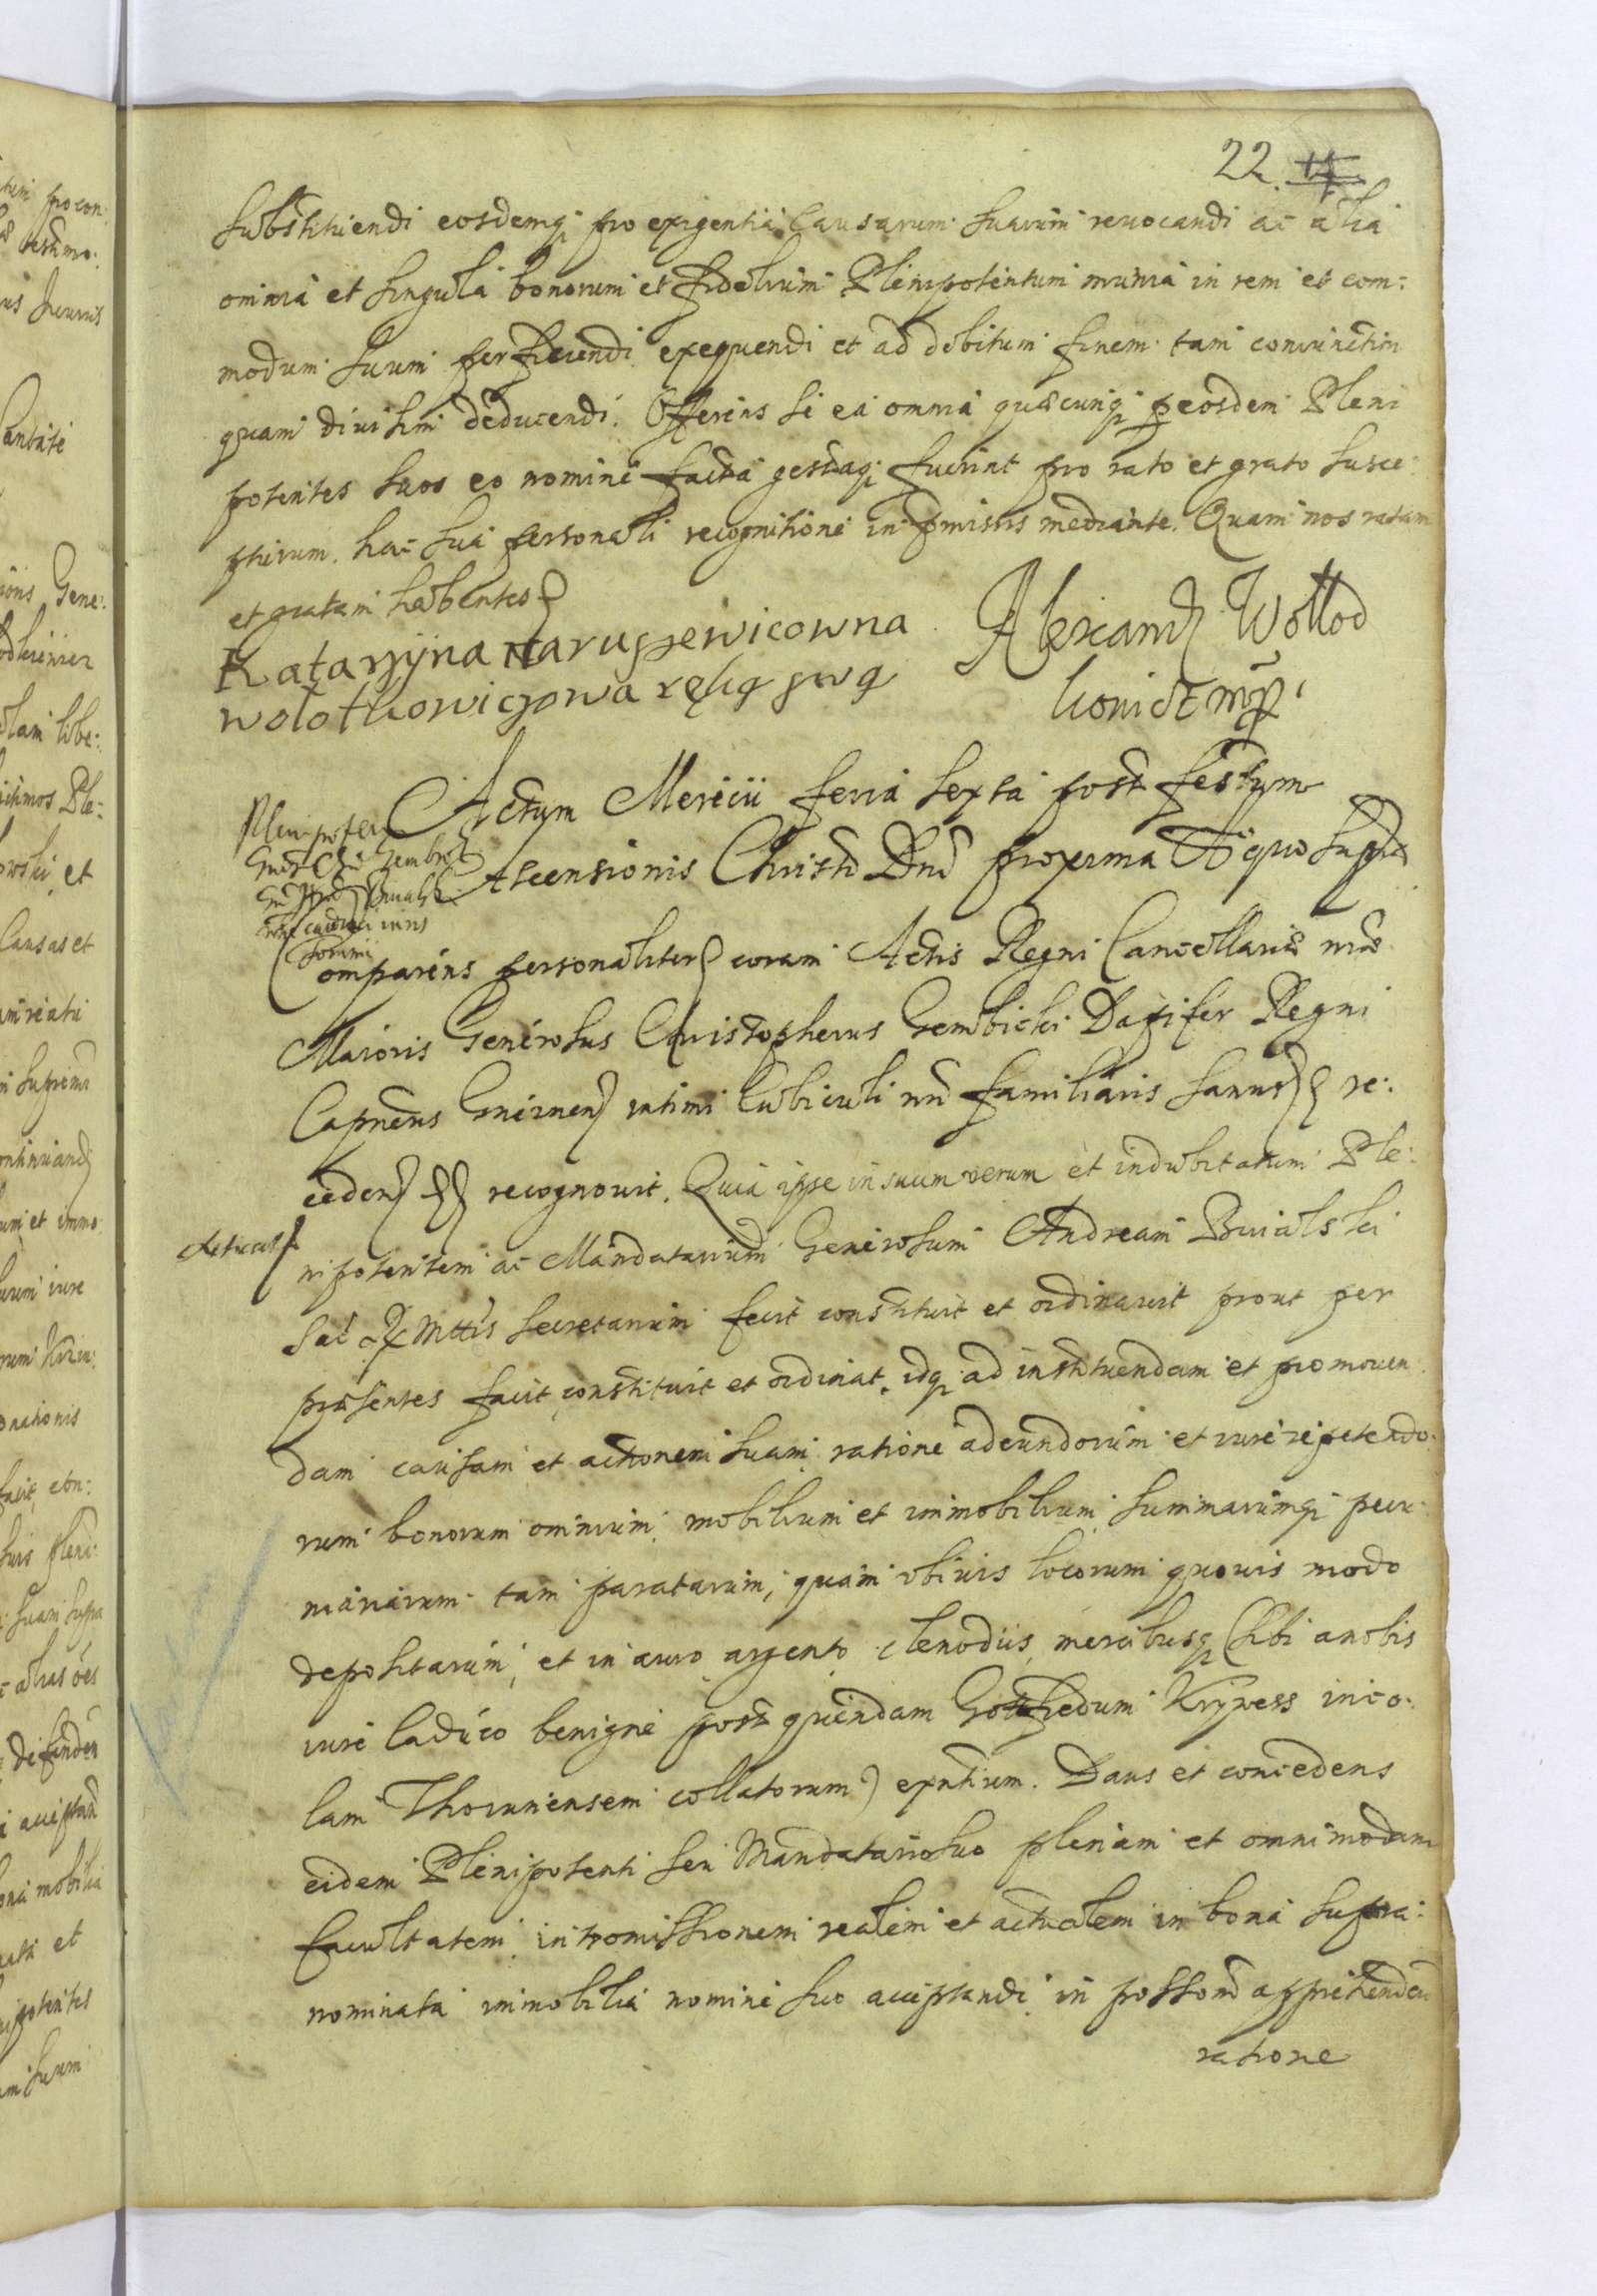 22. 14
substituendi eosdemq pro exigentia Causarum suarum revocandi ac alia
omnia et singula bonorum et fidelium Plenipotentum munia in rem et com:
modum suum perficiendi exequendi et ad debitum finem tam coniunctim
quam divisim deducendi. Offerens se ea omnia quæcunq p eosdem Pleni
potentes suos eo nomine facta gestaq fuerint pro rato et grato susce
pturum. hac sua personali recognitione in pmissis mediante. Quam nos ratam
et gratam habentes
Katarzyna Naruszewicowna
wołotkowiczowa ręką swą
Alexand Wołlod
kowicz mp
Actum Merecii feria sexta post festum
Ascensionis Christi Dni proxima Ao quo supra
Plenipoten
Gnsi Chri Gembic
Gn And Buialski
caduci iuris
Torunii
Comparens personaliter coram Actis Regni Cancellariæ nræ
Maioris Generosus Christopherus Gembicki Dapifer Regni
Capneus Gneznen intimi Cubiculi nri familiaris sanus re:
ceden recognovit. Quia ipse in suum verum et indubitatum Ple:
nipotentem ac Mandatarium Generosum Andream Buialski
Sac R Mttis Secretarium fecit constituit et ordinavit prout per
præsentes facit constituit et ordinat. idq ad instituendam et promoven
dam causam et actionem suam ratione adeundorum et iure repetendo
rum bonorum omnium mobilium et immobilium summarumq pecu
niariarum tam paratarum, quam ubivis locorum quovis modo
depositarum, et in auro argento clenodiis, mercibusq (sibi a nobis
iure Caduco benigne post quendam Gotfredum Krypess inco
lam Thoruniensem collatorum) exntium. Dans et concedens
eidem Plenipotenti seu Mandatario suo plenam et omnimodam
facultatem intromissionem realem et actualem in bona supra:
nominata immobilia nomine suo acceptandi in possom apprehenden
ratione